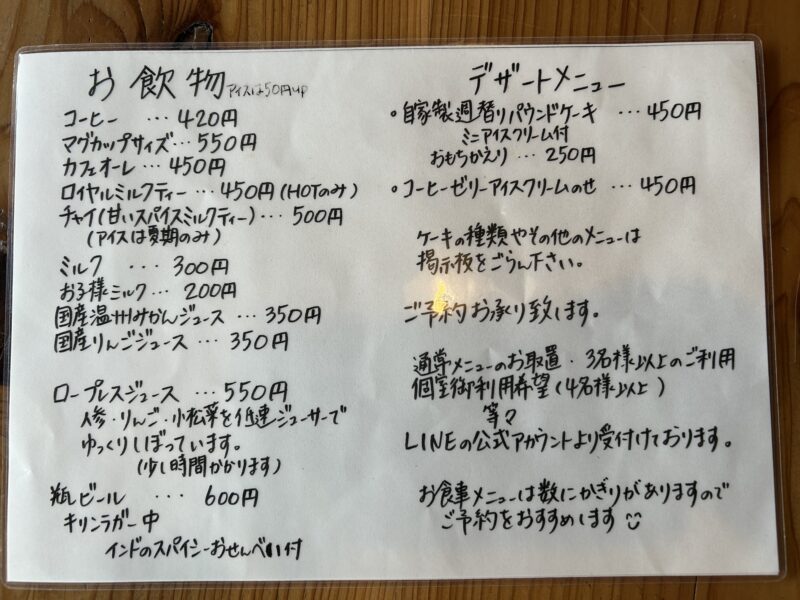 お飲物 アイスは50円up
コーヒー ･･･ 420円
マグカップサイズ･･･ 550円
カフェオーレ ･･･ 450円
ロイヤルミルクティー ･･･ 450円 (HOTのみ)
チャイ (甘いスパイスミルクティー) ･･･ 500円
(アイスは夏期のみ)
ミルク ･･･ 300円
お子様ミルク ･･･ 200円
国産温州みかんジュース ･･･ 350円
国産りんごジュース ･･･ 350円
ロープレスジュース ･･･ 550円
人参・りんご・小松菜を低速ジューサーで
ゆっくりしぼっています。
(少し時間かかります)
瓶ビール ･･･ 600円
キリンラガー中
インドのスパイシーおせんべい付
デザートメニュー
•自家製週替りパウンドケーキ ･･･ 450円
ミニアイスクリーム付
おもちかえり ･･･ 250円
•コーヒーゼリーアイスクリームのせ ･･･ 450円
ケーキの種類やその他のメニューは
掲示板をごらん下さい。
ご予約お承り致します。
通常メニューのお取置・3名様以上のご利用
個室御利用希望 (4名様以上)
等々
LINEの公式アカウントより受付けております。
お食事メニューは数にかぎりがありますので
ご予約をおすすめします